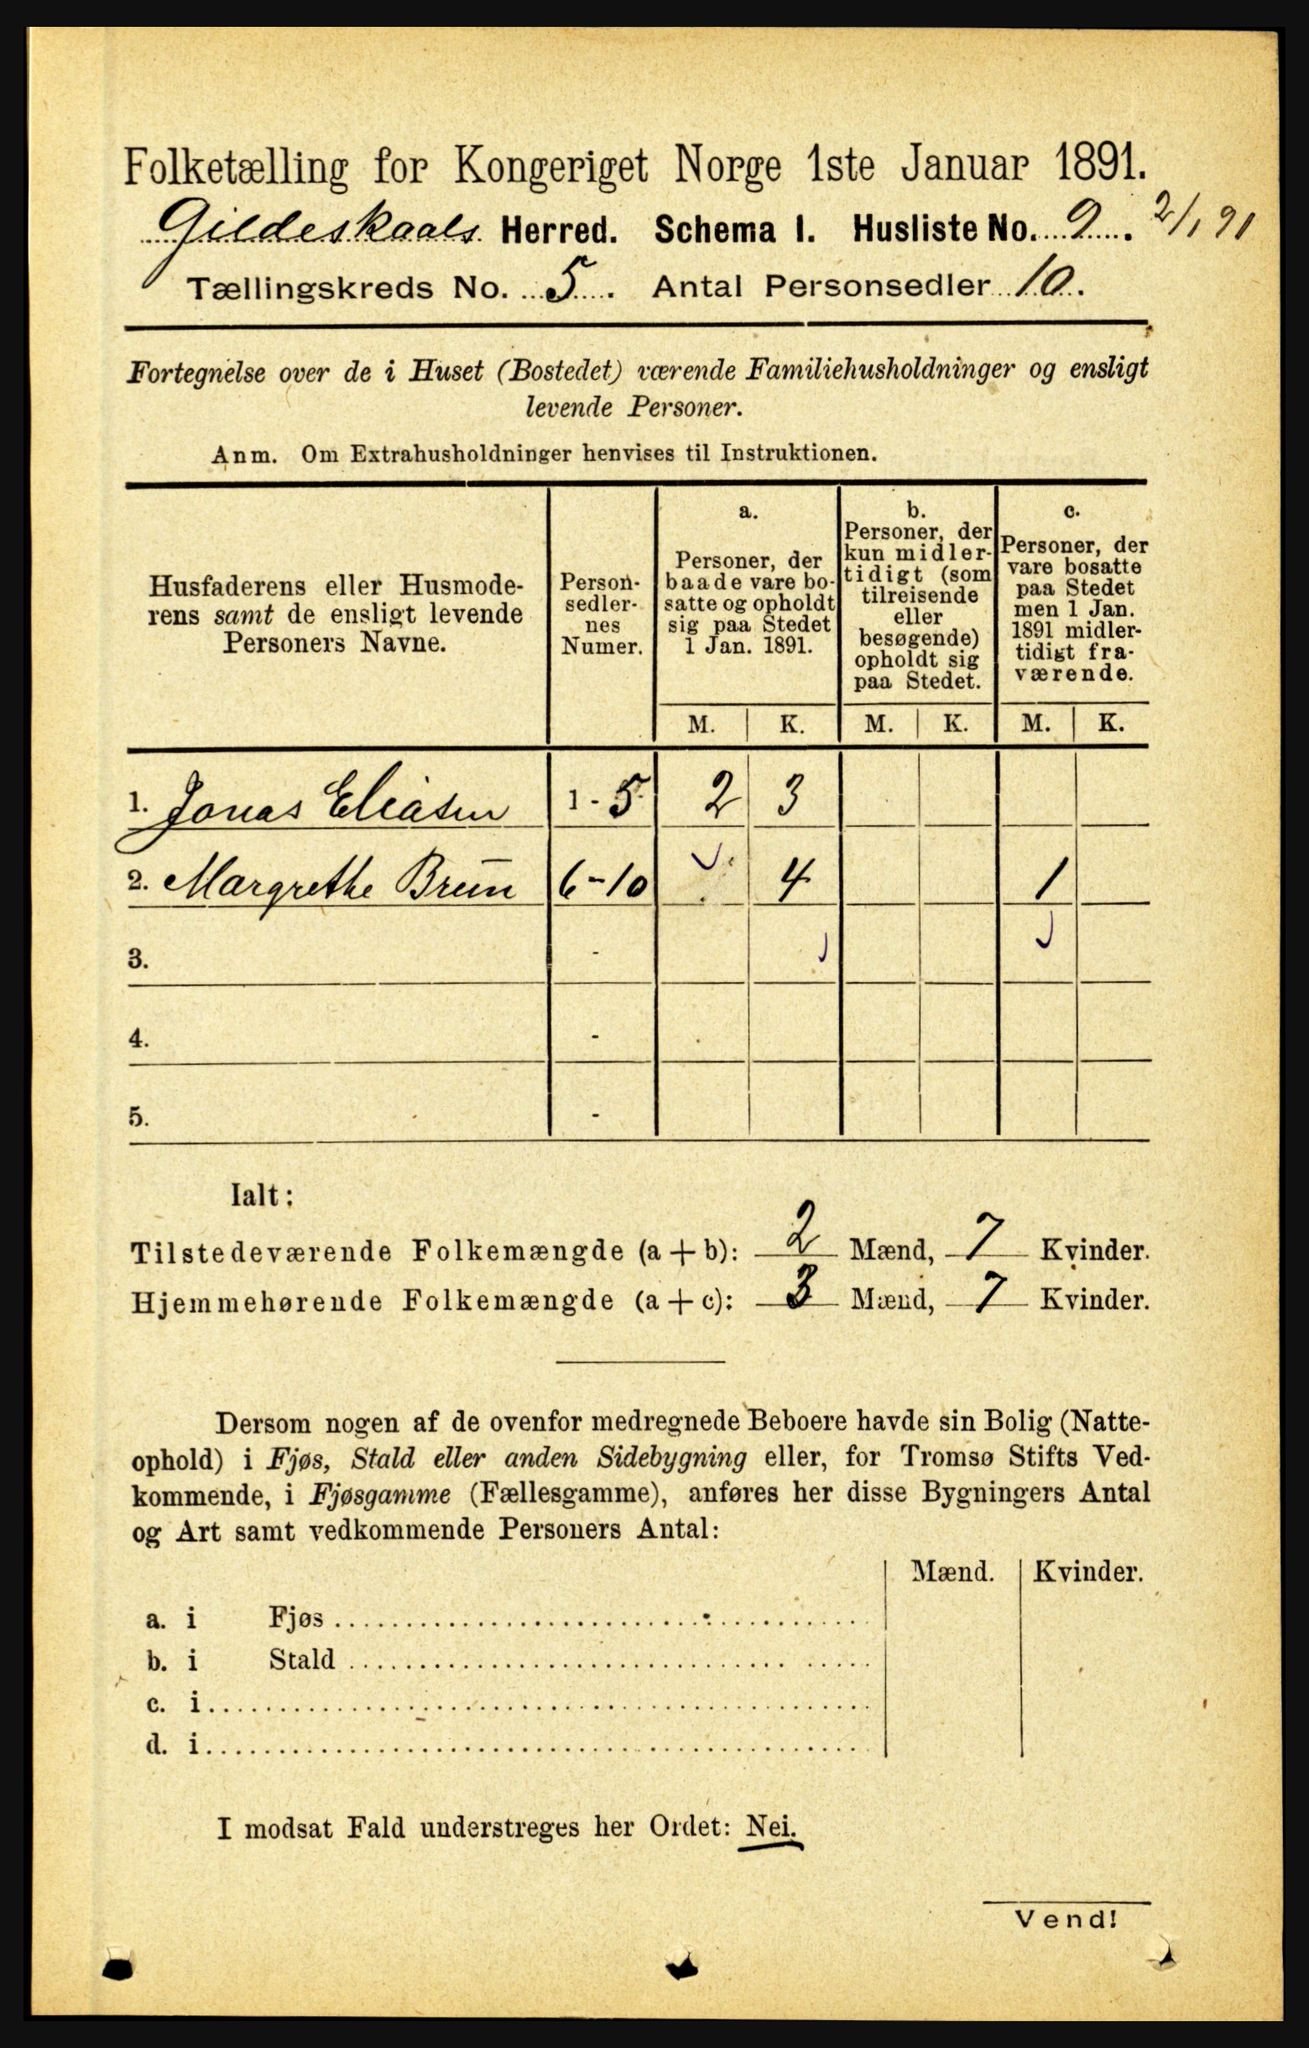 Folketælling for Kongeriget Norge 1ste Januar 1891.
Gildeskaals Herred. Schema I. Husliste No. 9. 2/1 91
Tællingskreds No. 5. Antal Personsedler 10.
Fortegnelse over de i Huset (Bostedet) værende Familiehusholdninger og ensligt
levende Personer.
Anm. Om Extrahusholdninger henvises til Instruktionen.
Husfaderens eller Husmode-
rens samt de ensligt levende
Personers Navne.
Person-
sedler-
nes
Numer.
a.
Personer, der
baade vare bo-
satte og opholdt
sig paa Stedet
1 Jan. 1891.
b.
Personer, der
kun midler-
tidigt (som
tilreisende
eller
besøgende)
opholdt sig
paa Stedet.
c.
Personer, der
vare bosatte
paa Stedet
men 1 Jan.
1891 midler-
tidigt fra-
værende.
M. K. M. K. M. K.
1. Jonas Eliasen 1 - 5 2 3
2. Margrethe Bruun 6 - 10 4 1
3. -
4. -
5. -
Ialt:
Tilstedeværende Folkemængde (a + b): 2 Mænd, 7 Kvinder.
Hjemmehørende Folkemængde (a + c): 3 Mænd, 7 Kvinder.
Dersom nogen af de ovenfor medregnede Beboere havde sin Bolig (Natte-
ophold) i Fjøs, Stald eller anden Sidebygning eller, for Tromsø Stifts Ved-
kommende, i Fjøsgamme (Fællesgamme), anføres her disse Bygningers Antal
og Art samt vedkommende Personers Antal:
Mænd. Kvinder.
a. i Fjøs
b. i Stald
c. i
d. i
I modsat Fald understreges her Ordet: Nei.
Vend!